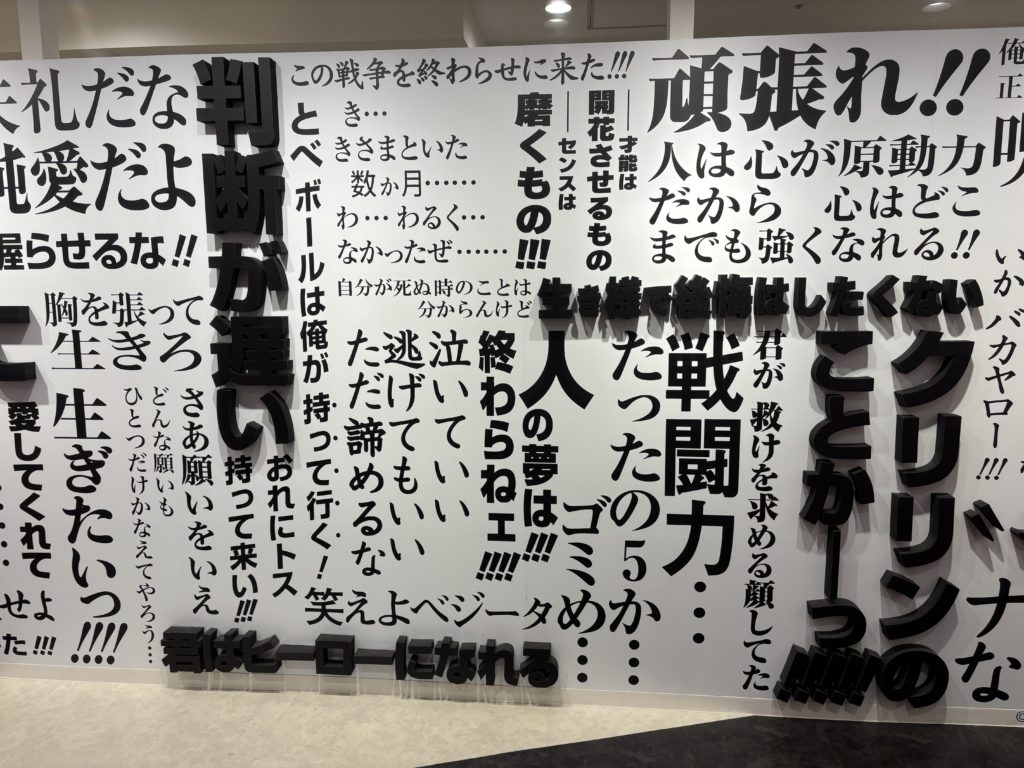 失礼だな
純愛だよ
握らせるな!!
に
胸を張って
生きろ
愛してくれて
生ぎたいっ!!!!
どんな願いも
ひとつだけかなえてやろう…
さあ願いをいえ
せよ
た!!!
判断が遅い
おれにトス
持って来い!!!
この戦争を終わらせに来た!!!
とべ
ボールは俺が持って行く!
き…
きさまといた
数か月……
わ…わるく…
なかったぜ……
自分が死ぬ時のことは
分からんけど
生き様で後悔はしたくない
泣いていい
逃げてもいい
ただ諦めるな
笑えよベジータ
君はヒーローになれる
才能は
開花させるもの
センスは
磨くもの!!!
人の夢は!!!
終わらねェ!!!!
頑張れ!!
人は心が原動力
だから 心はどこ
までも強くなれる!!
戦闘力…
たったの5か…
ゴミめ…
君が 救けを求める顔してた
クリリンの
ことかーっ!!!!!
俺
正
呪
いか
バカヤロー!!!
ナな
©